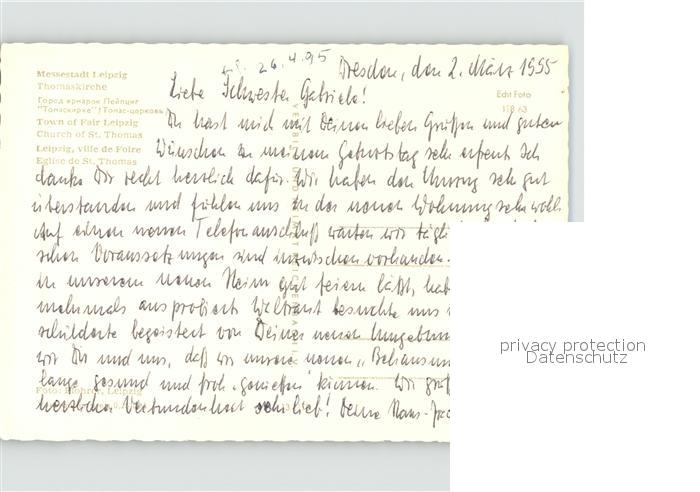 Messestadt Leipzig
Thomaskirche
Город ярмарок Лейпциг
"Томаскирхе" (Томас-церковь)
Town of Fair Leipzig
Church of St. Thomas
Leipzig, ville de Foire
Eglise de St. Thomas
Echt Foto
26.4.95 Dresden, den 2. März 1995
Liebe Schwester Gabriele!
Du hast mich mit Deinen lieben Grüßen und guten
Wünschen zu meinem Geburtstag sehr erfreut. Ich
danke Dir recht herzlich dafür. Wir haben den Umzug sehr gut
überstanden und fühlen uns in der neuen Wohnung sehr wohl.
Auf einen neuen Telefonanschluß warten wir
schen Voraussetzungen sind inzwischen vorhanden.
in unserem neuen Heim gut feiern läßt,
mehrmals ausprobiert. Waltraut besuchte uns
schilderte begeistert von Deiner neuen
wir Dir und uns, daß wir unsere neuen
lange gesund und froh "genießen" können. Wir
herzlicher Verbundenheit sehr lieb! Deine Hans-
privacy protection
Datenschutz